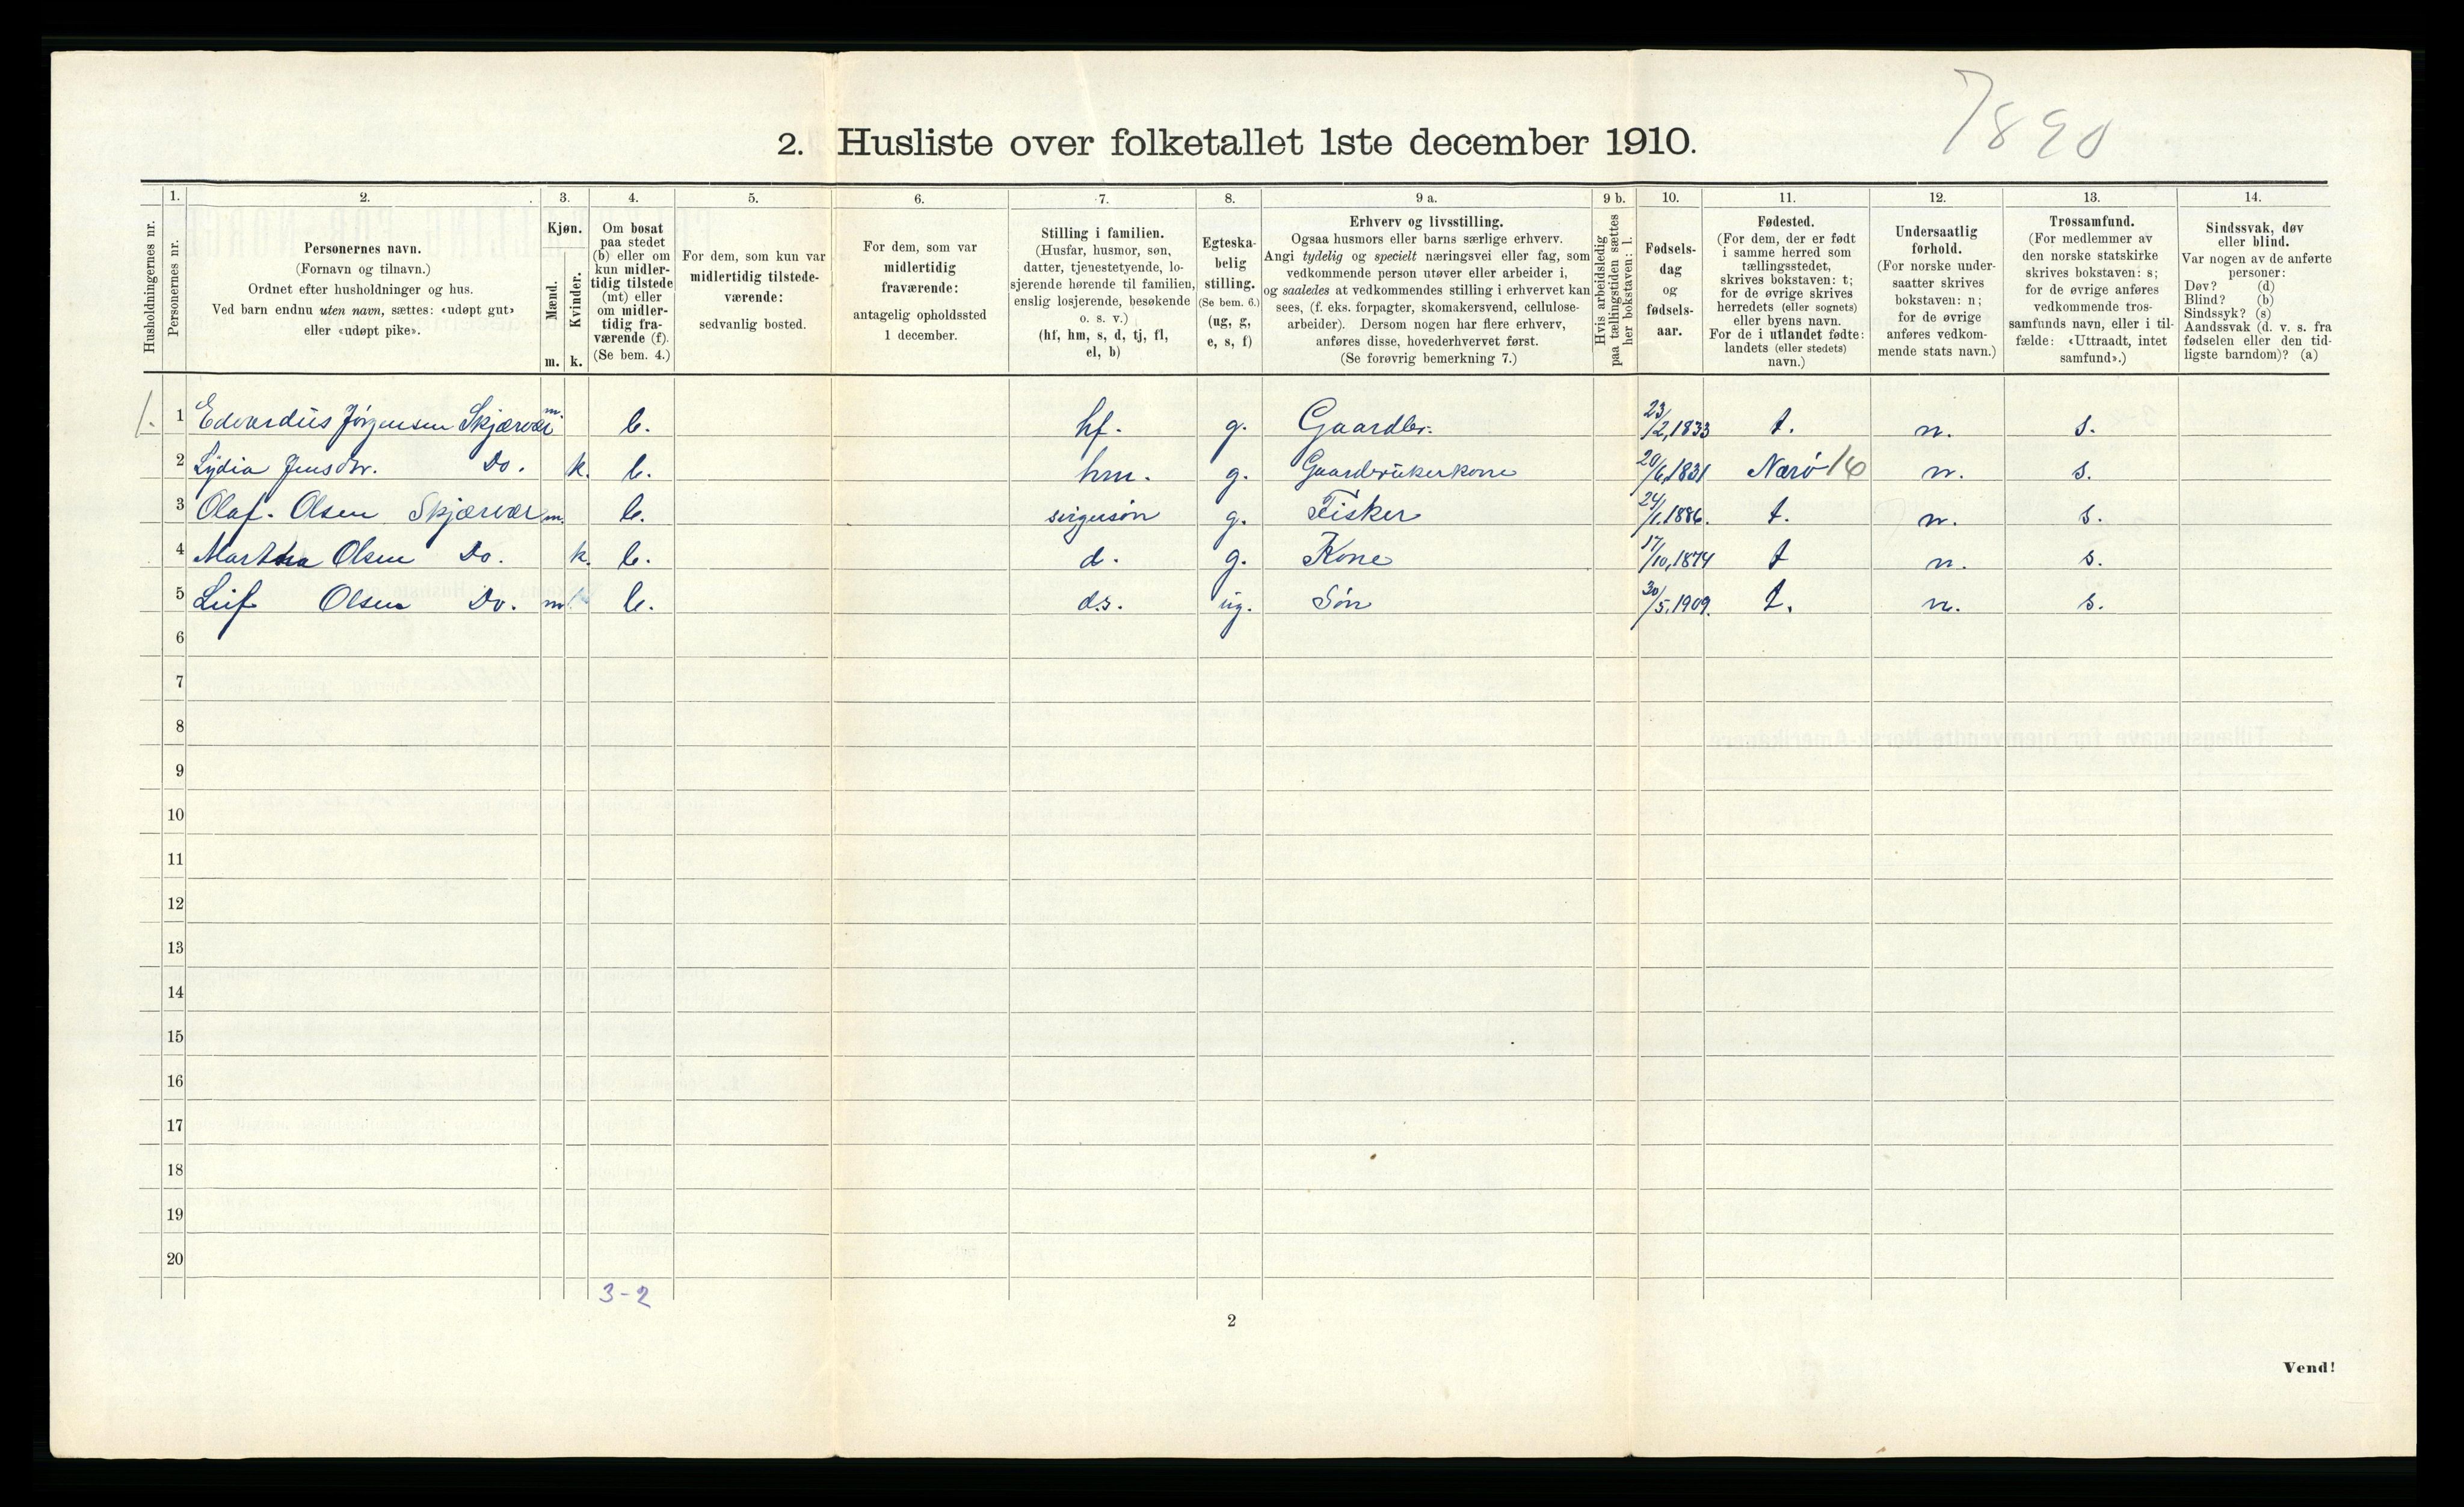 7890
2. Husliste over folketallet 1ste december 1910.
Husholdningernes nr.
1.
Personernes nr.
2.
Personernes navn.
(Fornavn og tilnavn.)
Ordnet efter husholdninger og hus.
Ved barn endnu uten navn, sættes: «udøpt gut»
eller «udøpt pike».
3.
Kjøn.
Mænd.
Kvinder.
m. k.
4.
Om bosat
paa stedet
(b) eller om
kun midler-
tidig tilstede
(mt) eller
om midler-
tidig fra-
værende (f).
(Se bem. 4.)
5.
For dem, som kun var
midlertidig tilstede-
værende:
sedvanlig bosted.
6.
For dem, som var
midlertidig
fraværende:
antagelig opholdssted
1 december.
7.
Stilling i familien.
(Husfar, husmor, søn,
datter, tjenestetyende, lo-
sjerende hørende til familien,
enslig losjerende, besøkende
o. s. v.)
(hf, hm, s, d, tj, fl,
el, b)
8.
Egteska-
belig
stilling.
(Se bem. 6.)
(ug, g,
e, s, f)
9 a.
Erhverv og livsstilling.
Ogsaa husmors eller barns særlige erhverv.
Angi tydelig og specielt næringsvei eller fag, som
vedkommende person utøver eller arbeider i,
og saaledes at vedkommendes stilling i erhvervet kan
sees, (f. eks. forpagter, skomakersvend, cellulose-
arbeider). Dersom nogen har flere erhverv,
anføres disse, hovederhvervet først.
(Se forøvrig bemerkning 7.)
9 b.
Hvis arbeidsledig
paa tællingstiden sættes
her bokstaven: l.
10.
Fødsels-
dag
og
fødsels-
aar.
11.
Fødested.
(For dem, der er født
i samme herred som
tællingsstedet,
skrives bokstaven: t;
for de øvrige skrives
herredets (eller sognets)
eller byens navn.
For de i utlandet fødte:
landets (eller stedets)
navn.)
12.
Undersaatlig
forhold.
(For norske under-
saatter skrives
bokstaven: n;
for de øvrige
anføres vedkom-
mende stats navn.)
13.
Trossamfund.
(For medlemmer av
den norske statskirke
skrives bokstaven: s;
for de øvrige anføres
vedkommende tros-
samfunds navn, eller i til-
fælde: «Uttraadt, intet
samfund».)
14.
Sindssvak, døv
eller blind.
Var nogen av de anførte
personer:
Døv? (d)
Blind? (b)
Sindssyk? (s)
Aandssvak (d. v. s. fra
fødselen eller den tid-
ligste barndom)? (a)
1. 1 Edvardus Jørgensen Skjærvær m. b. hf. g. Gaardbr. 23/2,1833 t. n. s.
2 Lydia Jensdtr. Do. k. b. hm. g. Gaardbrukerkone 20/6,1831 Nærö 16 n. s.
3 Olaf. Olsen Skjærvær m. b. svigersön g. Fisker 24/1,1886. t. n. s.
4 Martha Olsen Do. k. b. d. g. Kone 17/10,1874 t n. s.
5 Leif Olsen Do. m b. d.s. ug. Sön 30/5,1909. t. n. s.
6
7
8
9
10
11
12
13
14
15
16
17
18
19
20
3-2
2
Vend!